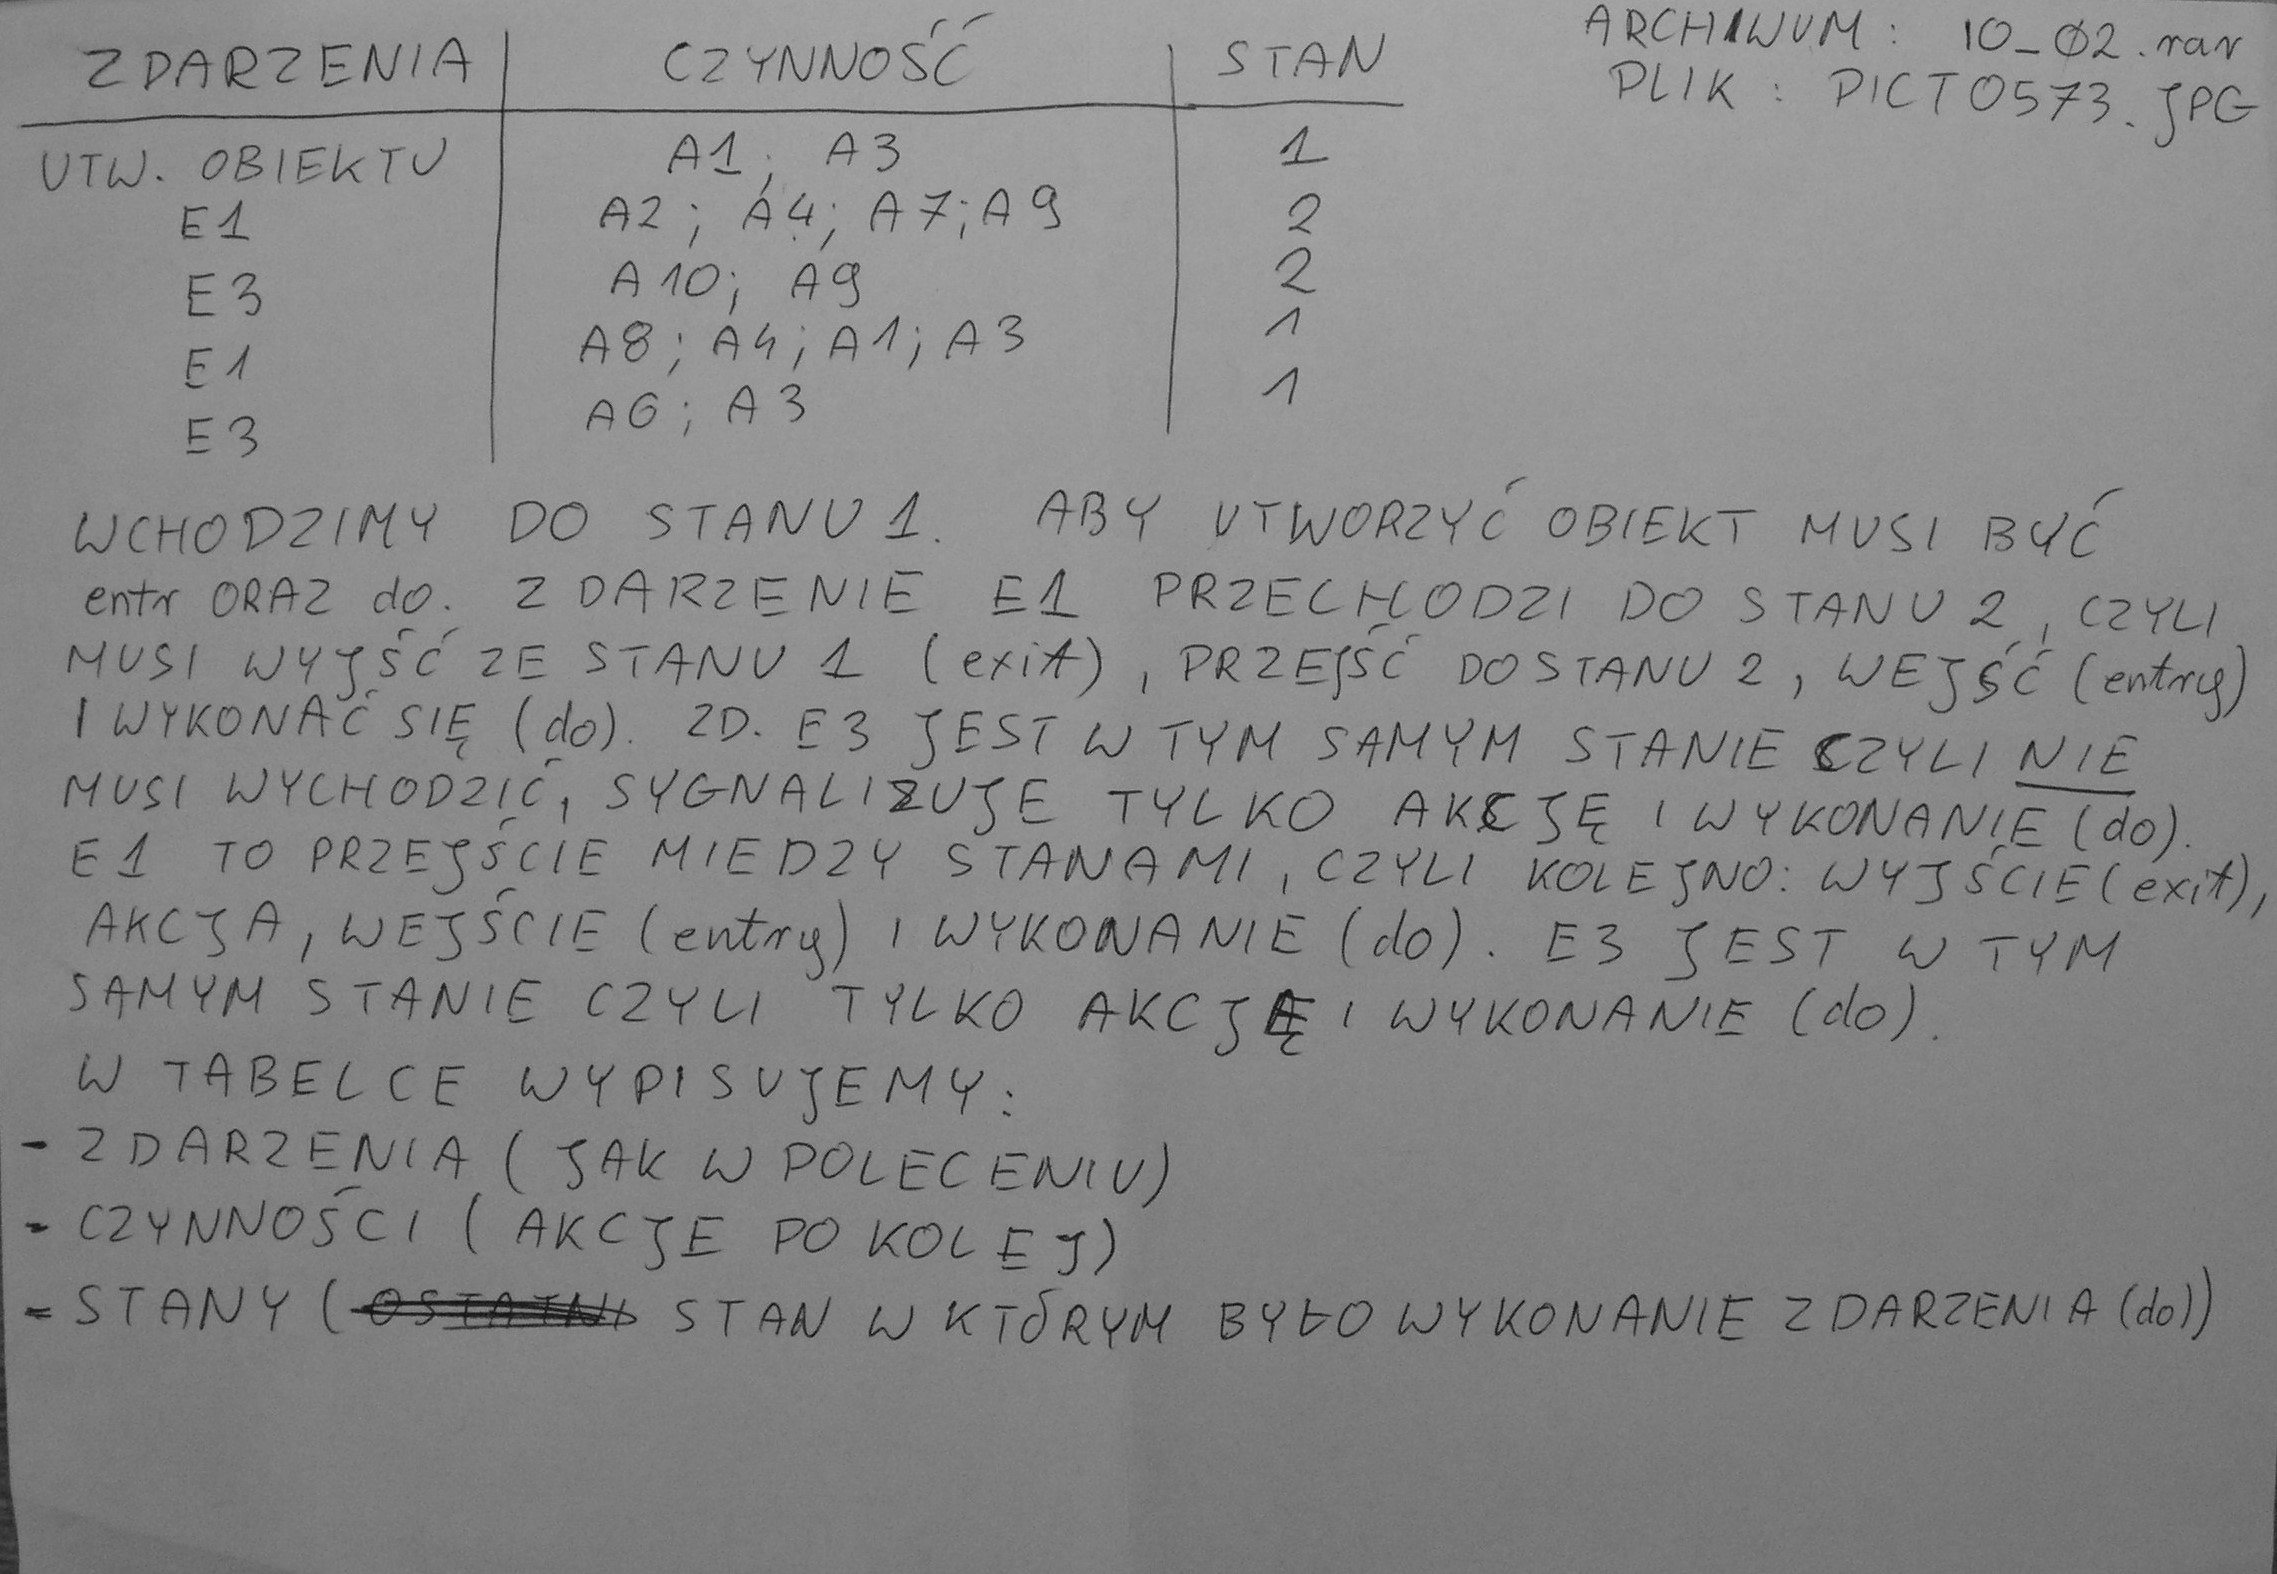 ARCHIWUM: 10_02.rar
PLIK: PICT0573.JPG
ZDARZENIA CZYNNOŚĆ STAN
UTW. OBIEKTU A1; A3 1
E1 A2; A4; A7; A9 2
E3 A10; A9 2
E1 A8; A4; A1; A3 1
E3 A6; A3 1
WCHODZIMY DO STANU 1. ABY UTWORZYĆ OBIEKT MUSI BYĆ
entr ORAZ do. ZDARZENIE E1 PRZECHODZI DO STANU 2, CZYLI
MUSI WYJŚĆ ZE STANU 1 (exit), PRZEJŚĆ DO STANU 2, WEJŚĆ (entry)
I WYKONAĆ SIĘ (do). ZD. E3 JEST W TYM SAMYM STANIE CZYLI NIE
MUSI WYCHODZIĆ, SYGNALIZUJE TYLKO AKCJĘ I WYKONANIE (do).
E1 TO PRZEJŚCIE MIEDZY STANAMI, CZYLI KOLEJNO: WYJŚCIE (exit),
AKCJA, WEJŚCIE (entry) I WYKONANIE (do). E3 JEST W TYM
SAMYM STANIE CZYLI TYLKO AKCJĘ I WYKONANIE (do).
W TABELCE WYPISUJEMY:
- ZDARZENIA (JAK W POLECENIU)
- CZYNNOŚCI (AKCJE PO KOLEJ)
- STANY (OSTATNI STAN W KTÓRYM BYŁO WYKONANIE ZDARZENIA (do))